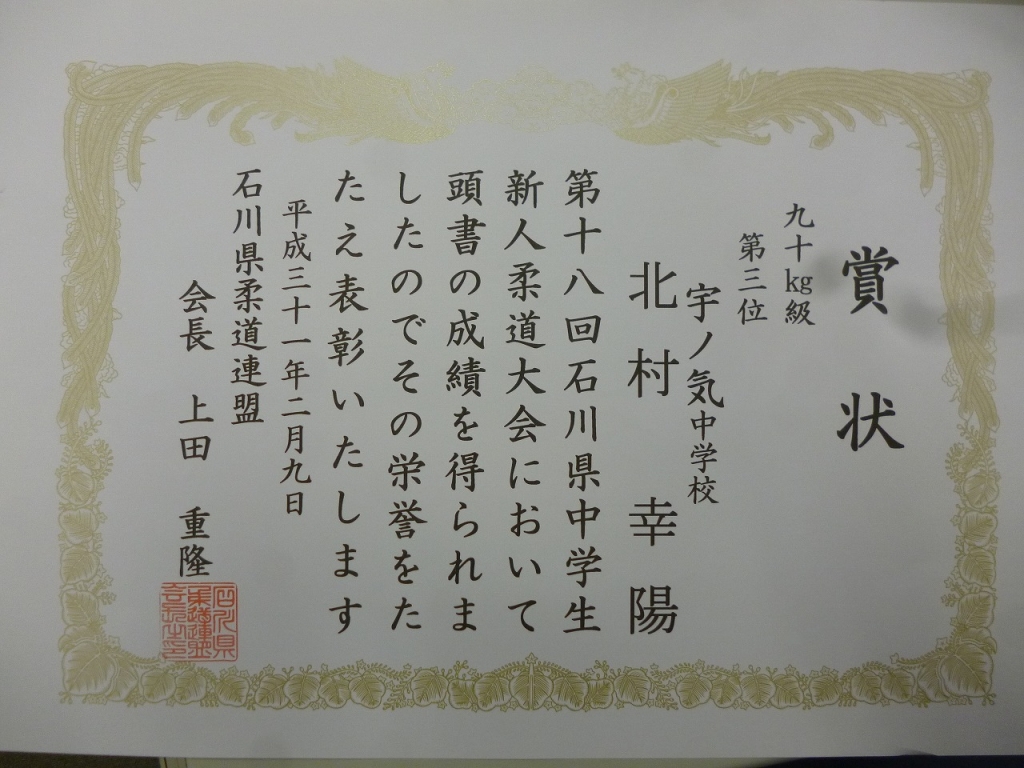 賞状
九十kg級
第三位
宇ノ気中学校
北村幸陽
第十八回石川県中学生
新人柔道大会において
頭書の成績を得られま
したのでその栄誉をた
たえ表彰いたします
平成三十一年二月九日
石川県柔道連盟
会長 上田 重隆